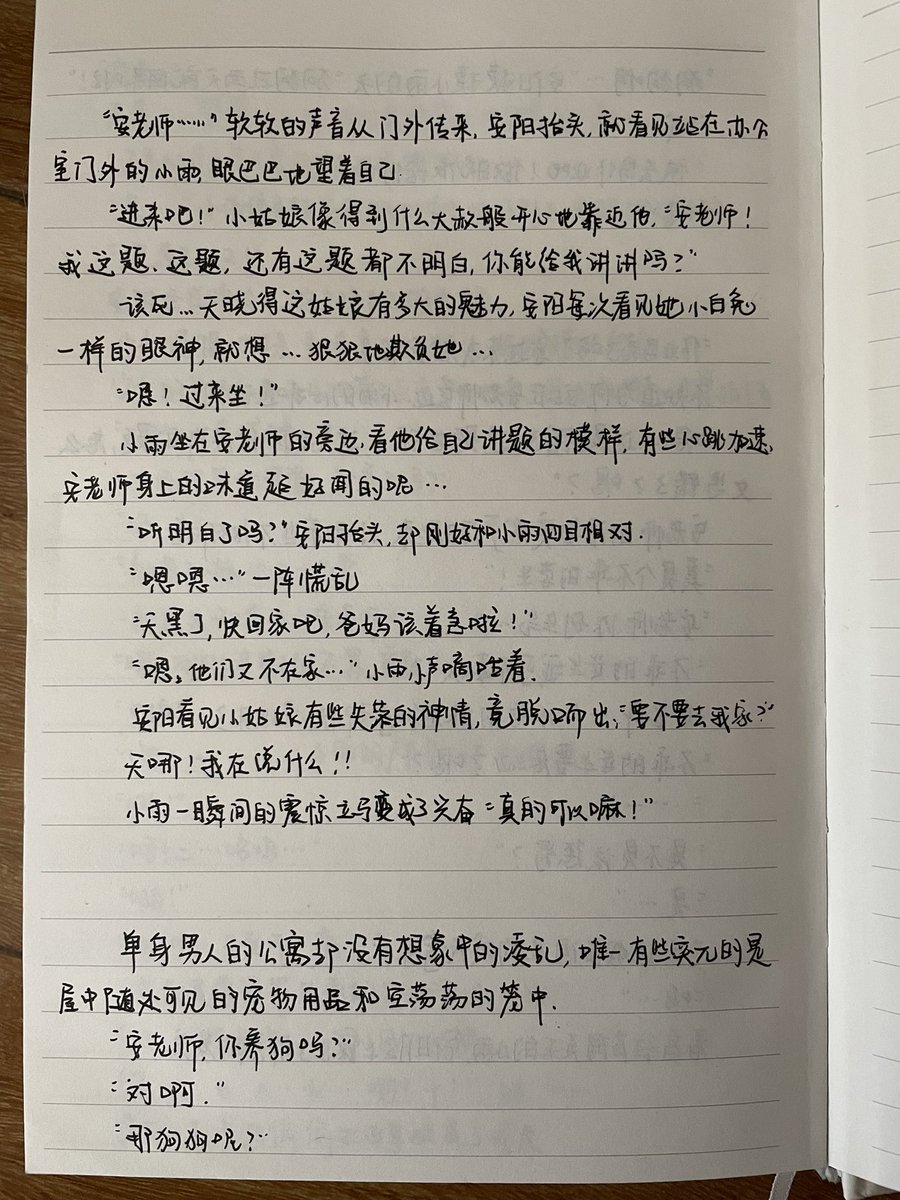 “安老师……”软软的声音从门外传来，安阳抬头，就看见站在办公
室门外的小雨，眼巴巴地望着自己.
“进来吧！”小姑娘像得到什么大赦般开心地靠近他，“安老师！
我这题、这题，还有这题都不明白，你能给我讲讲吗？”
该死…天晓得这姑娘有多大的魅力，安阳每次看见她小白兔
一样的眼神，就想…狠狠地欺负她…
“喔！过来坐！”
小雨坐在安老师的旁边，看他给自己讲题的模样，有些心跳加速，
安老师身上的味道还挺好闻的呢…
“听明白了吗？”安阳抬头，却刚好和小雨四目相对.
“嗯嗯…”一阵慌乱
“天黑了，快回家吧，爸妈该着急啦！”
“嗯，他们又不在家…”小雨小声嘀咕着.
安阳看见小姑娘有些失落的神情，竟脱口而出，“要不要去我家？”
天哪！我在说什么！！
小雨一瞬间的震惊立马变成了兴奋“真的可以嘛！”
单身男人的公寓却没有想象中的凌乱，唯一有些突兀的是
屋中随处可见的宠物用品和空荡荡的笼中.
“安老师，你养狗吗？”
“对啊.”
“那狗狗呢？”